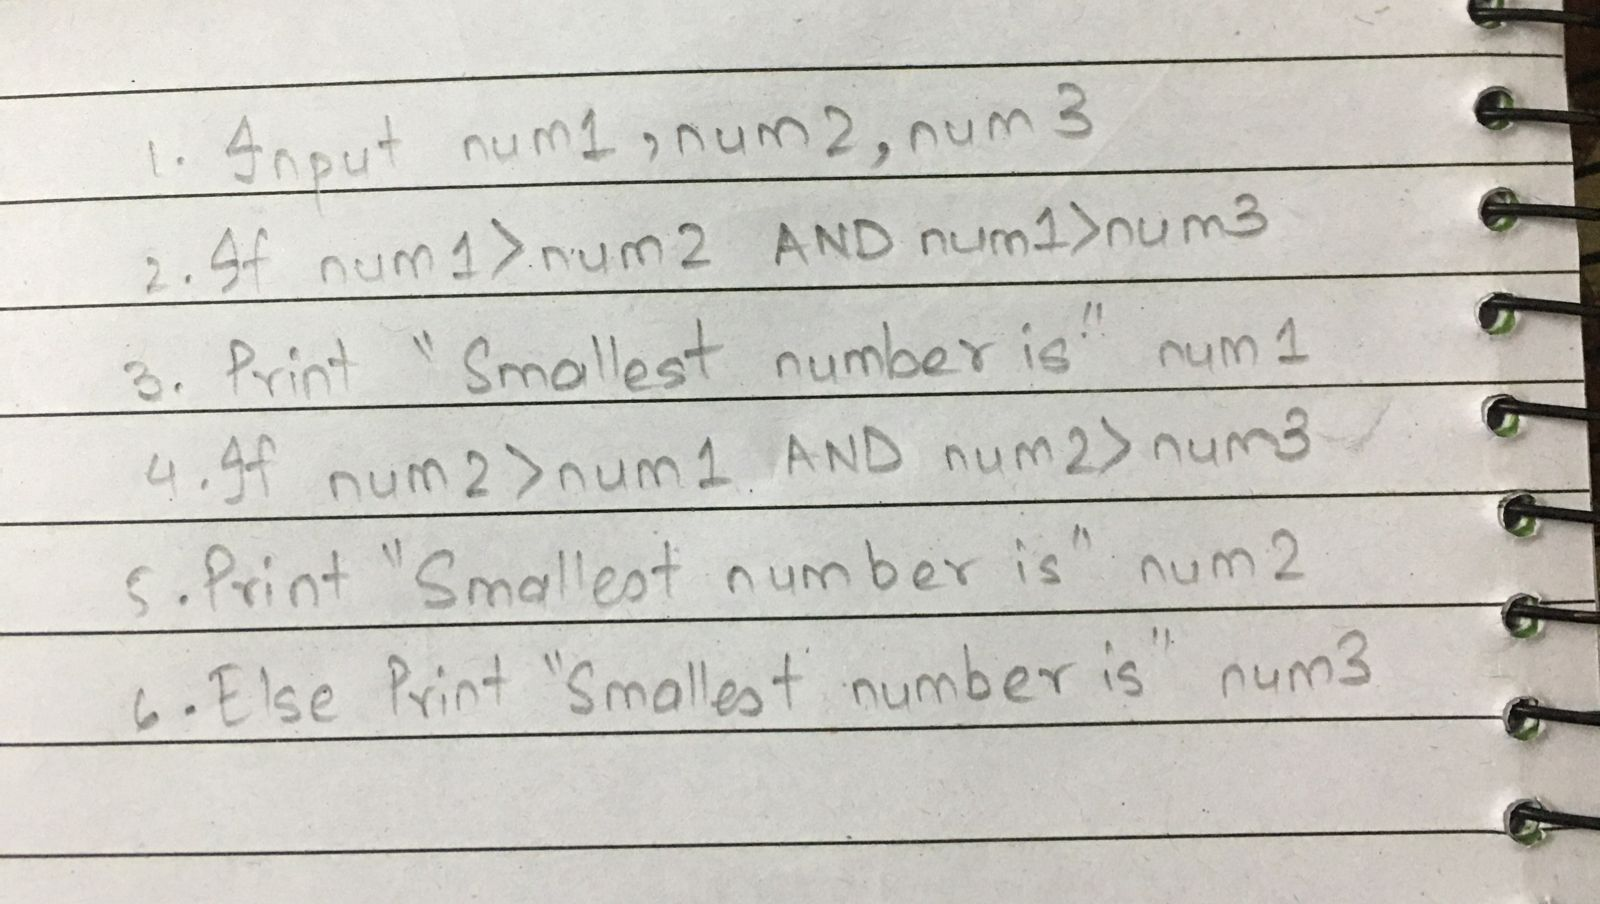 1. Input num1, num2, num3
2. If num1>num2 AND num1>num3
3. Print "Smallest number is" num1
4. If num2>num1 AND num2>num3
5. Print "Smallest number is" num2
6. Else Print "Smallest number is" num3